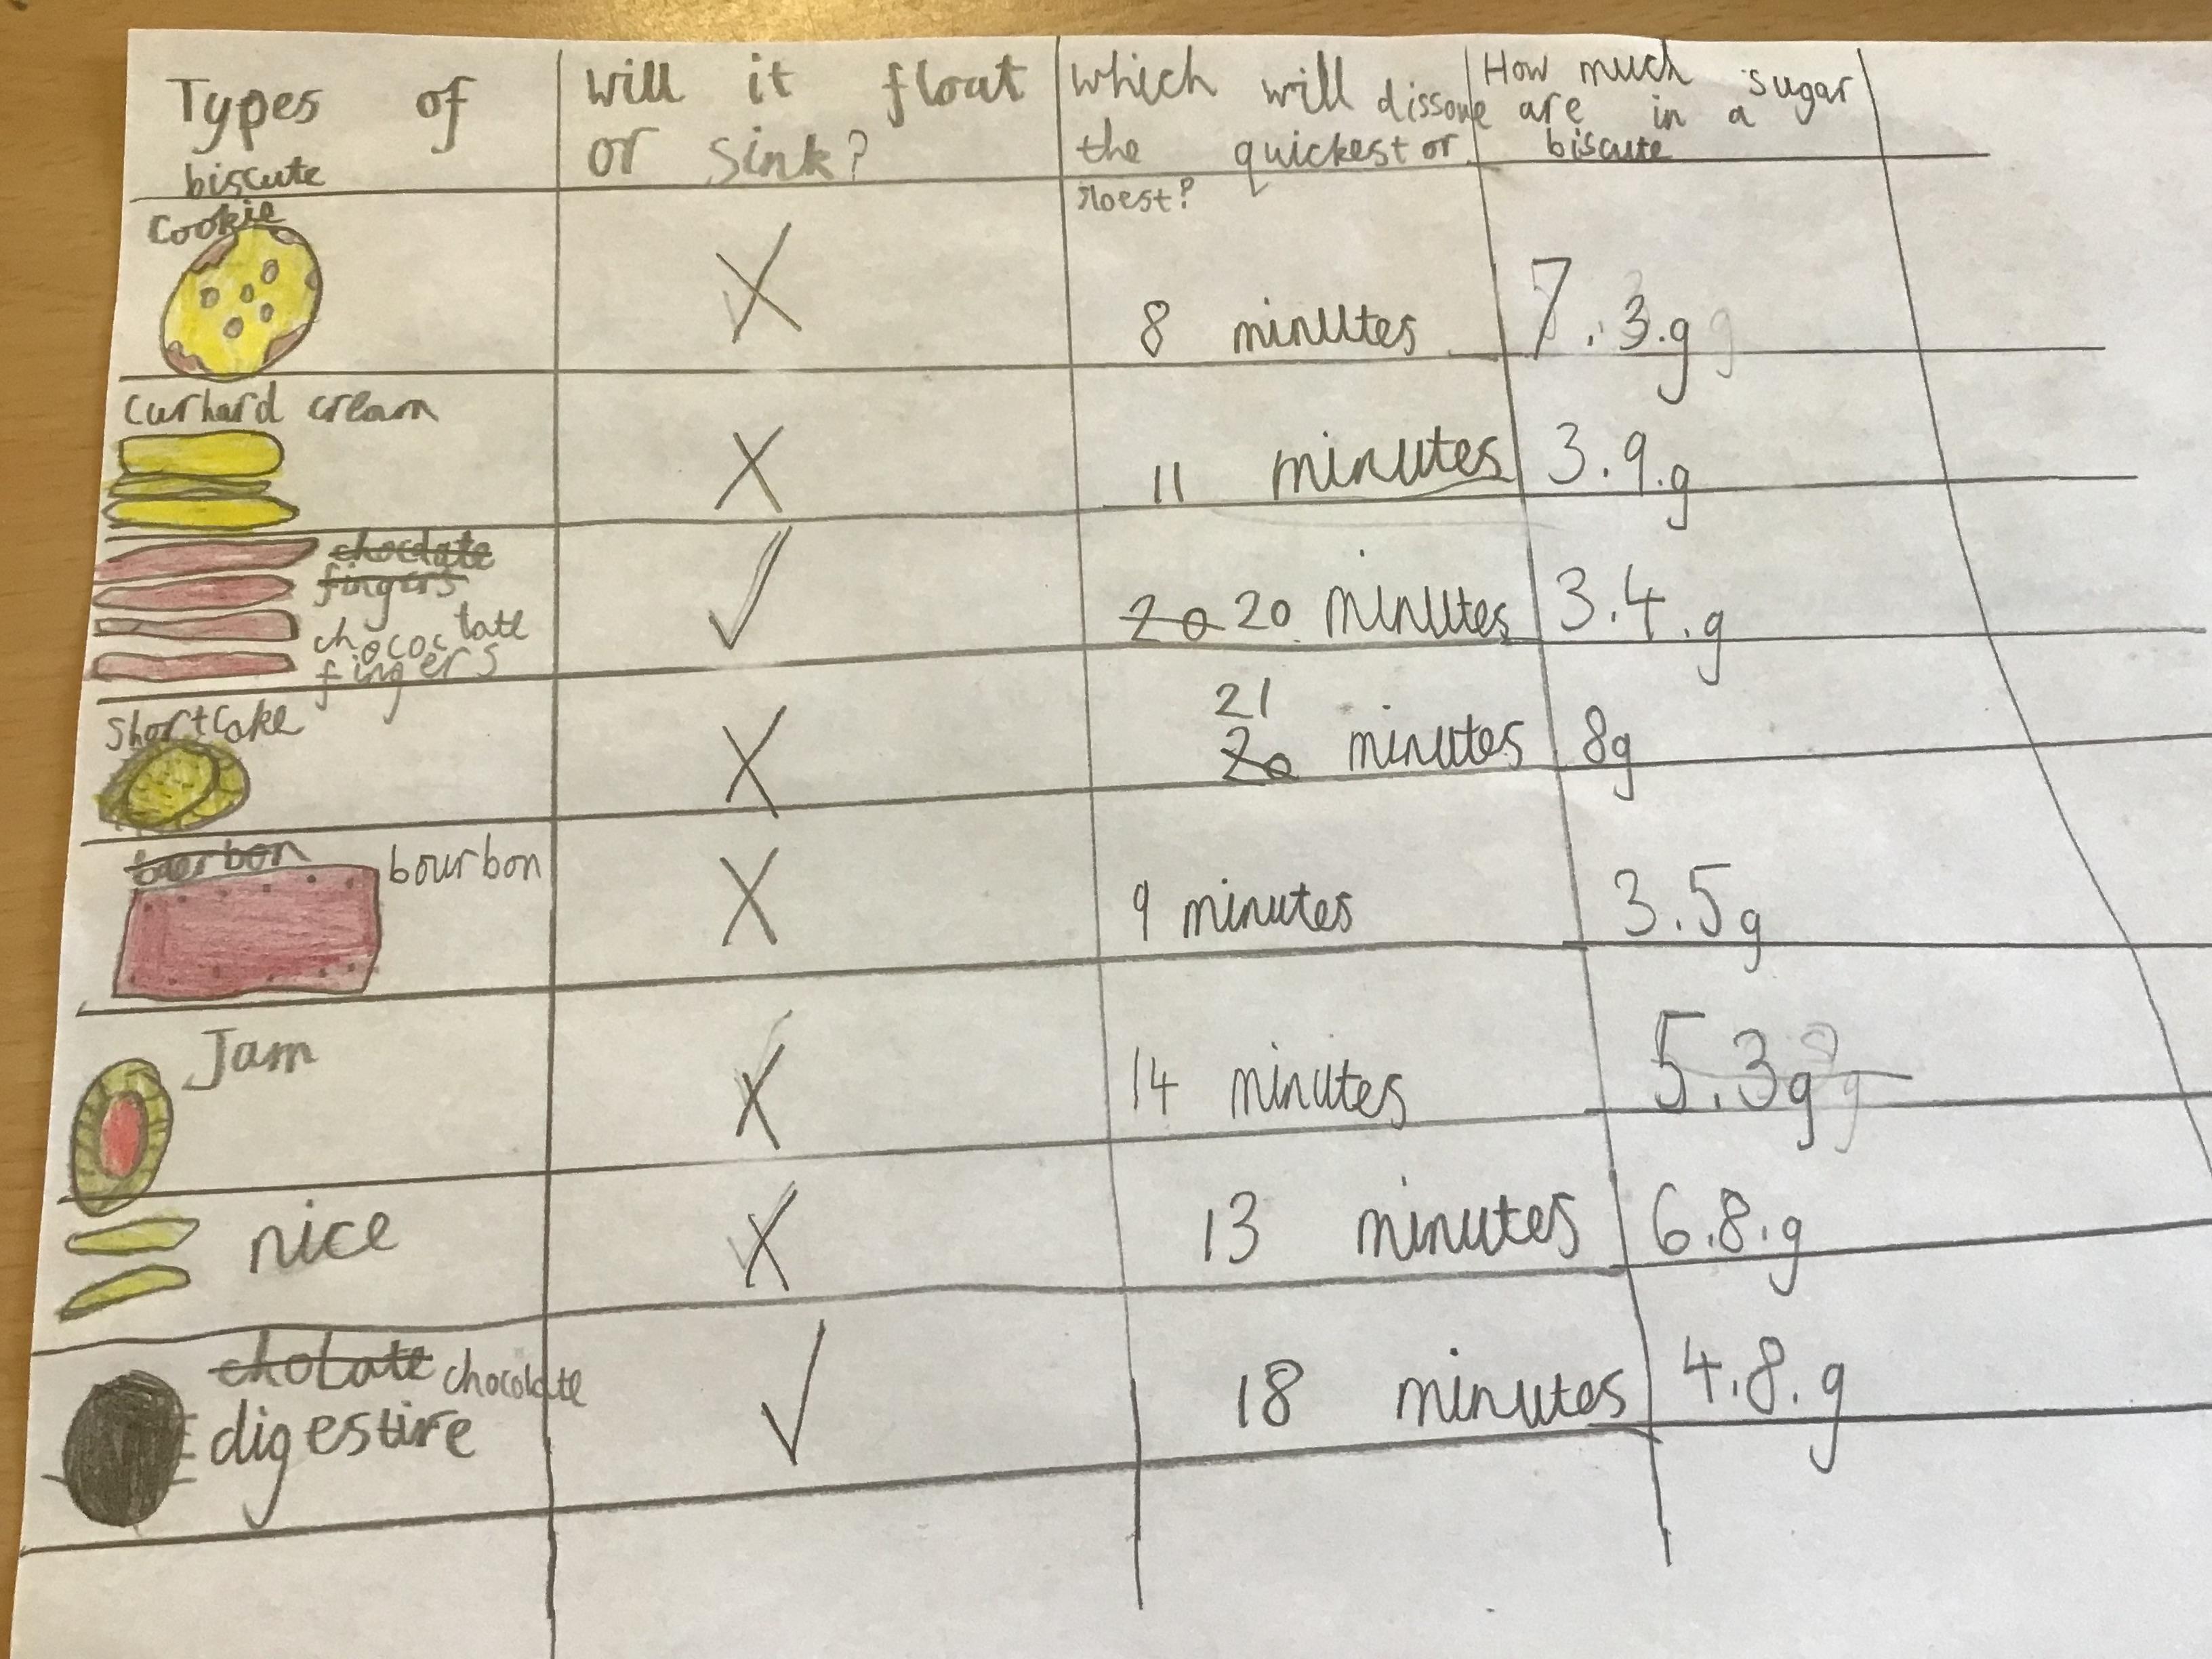 Types of
biscute
will it float
or sink?
which will dissove
the quickest or
sloest?
How much sugar
are in a
biscute
Cookie
X
8 minutes
7.3.g
Curhard cream
X
11 minutes
3.9.g
chocolate
fingers
chococlate
fingers
✓
20 20 minutes
3.4.g
shortcake
X
21
20 minutes
8g
baerbon bourbon
X
9 minutes
3.5g
Jam
X
14 minutes
5.3g
nice
X
13 minutes
6.8.g
cholate chocolate
digestive
✓
18 minutes
4.8.g